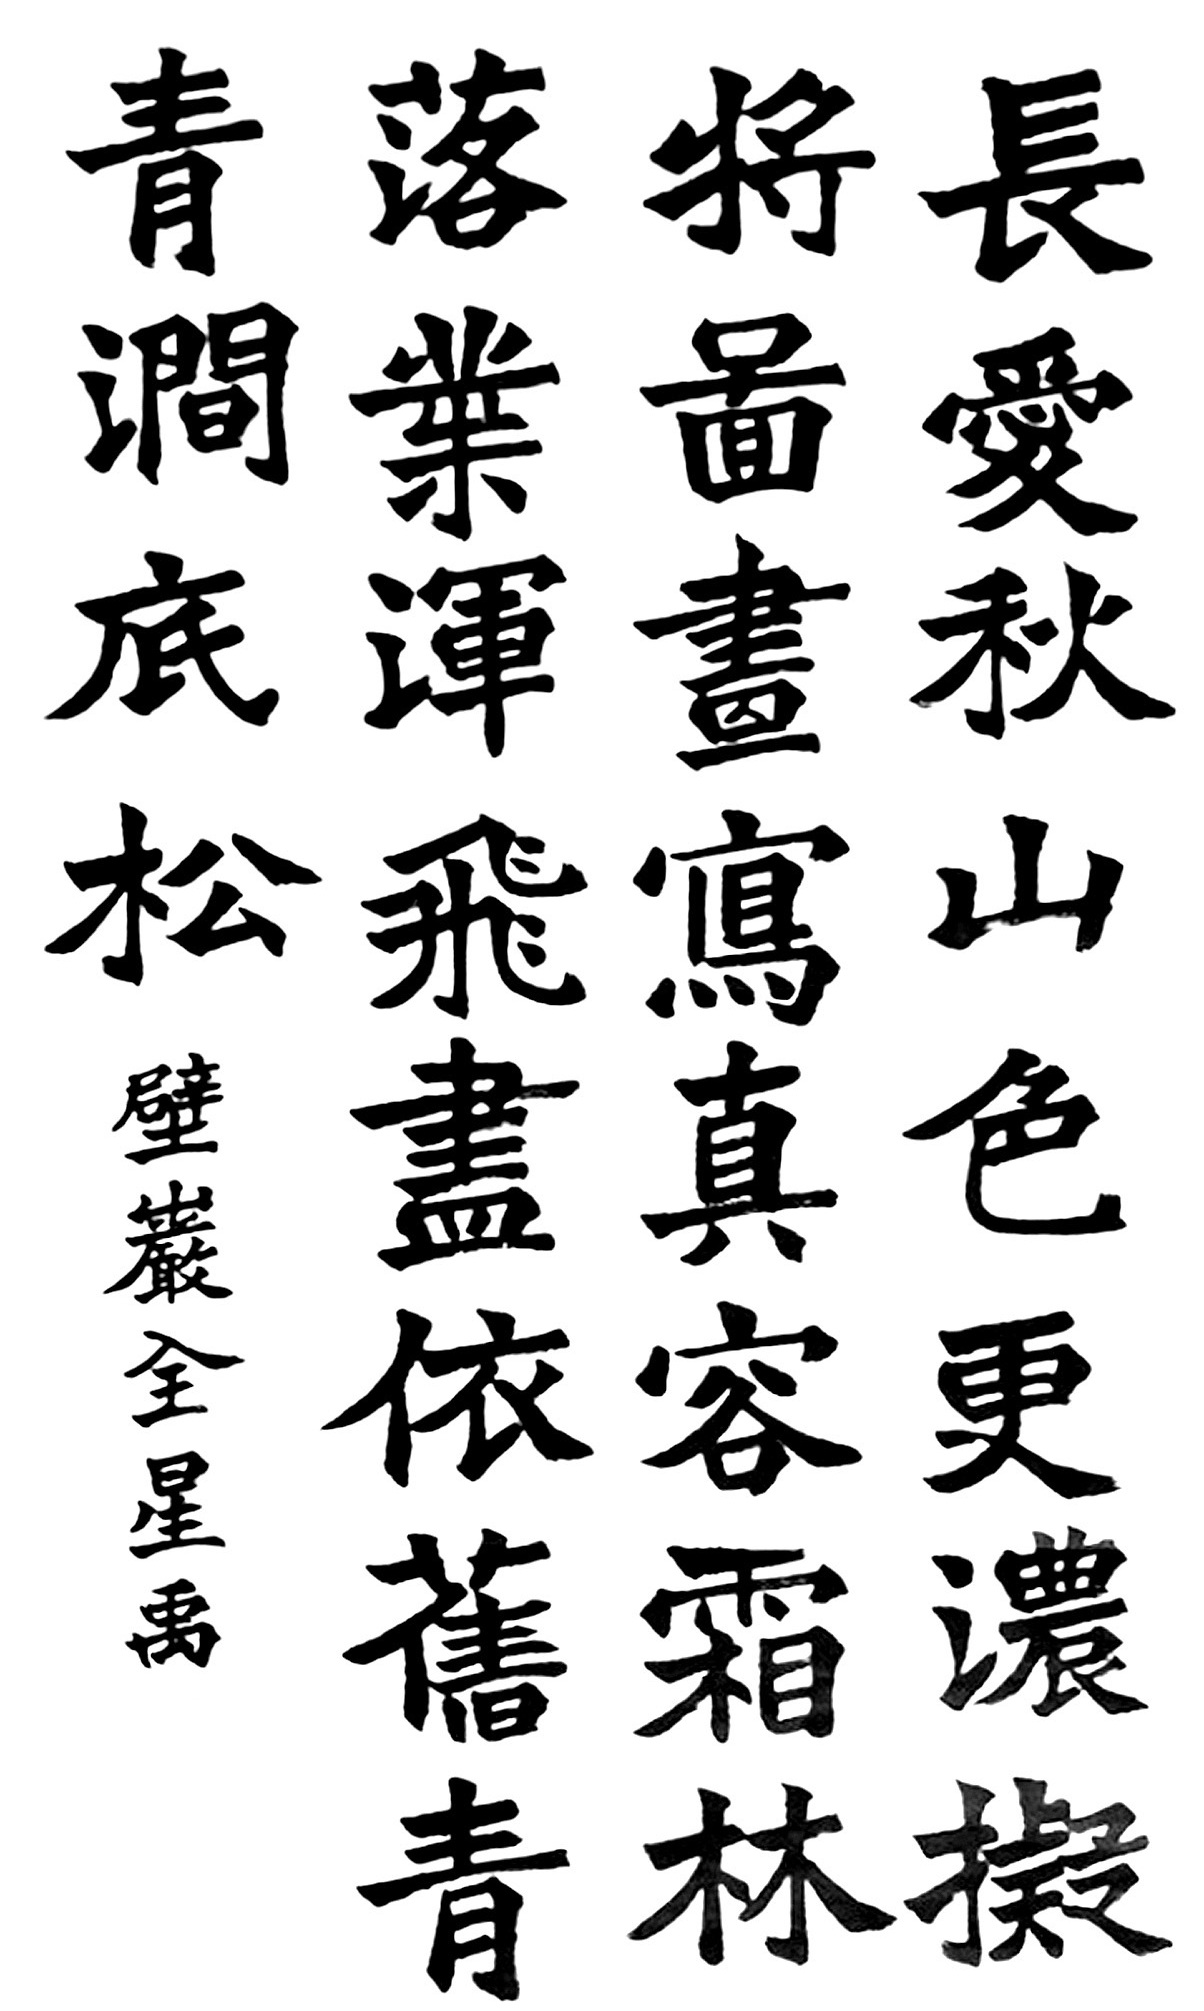 長愛秋山色更濃擬
將啚畫寫真容霜林
落葉渾飛盡依舊青
青澗底松
壁巖全星禹